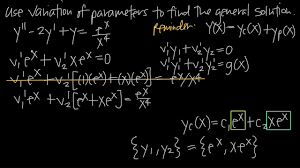 Use variation of parameters to find the general solution.
y'' - 2y' + y = e^x/x^4
Reminder: y(x) = y_c(x) + y_p(x)
v_1'y_1 + v_2'y_2 = 0
v_1'y_1' + v_2'y_2' = g(x)
v_1'e^x + v_2'xe^x = 0
v_1'e^x + v_2'[(1)(e^x) + (x)(e^x)] = e^x/x^4
v_1'e^x + v_2'[e^x + xe^x] = e^x/x^4
y_c(x) = c_1e^x + c_2xe^x
{y_1, y_2} = {e^x, xe^x}